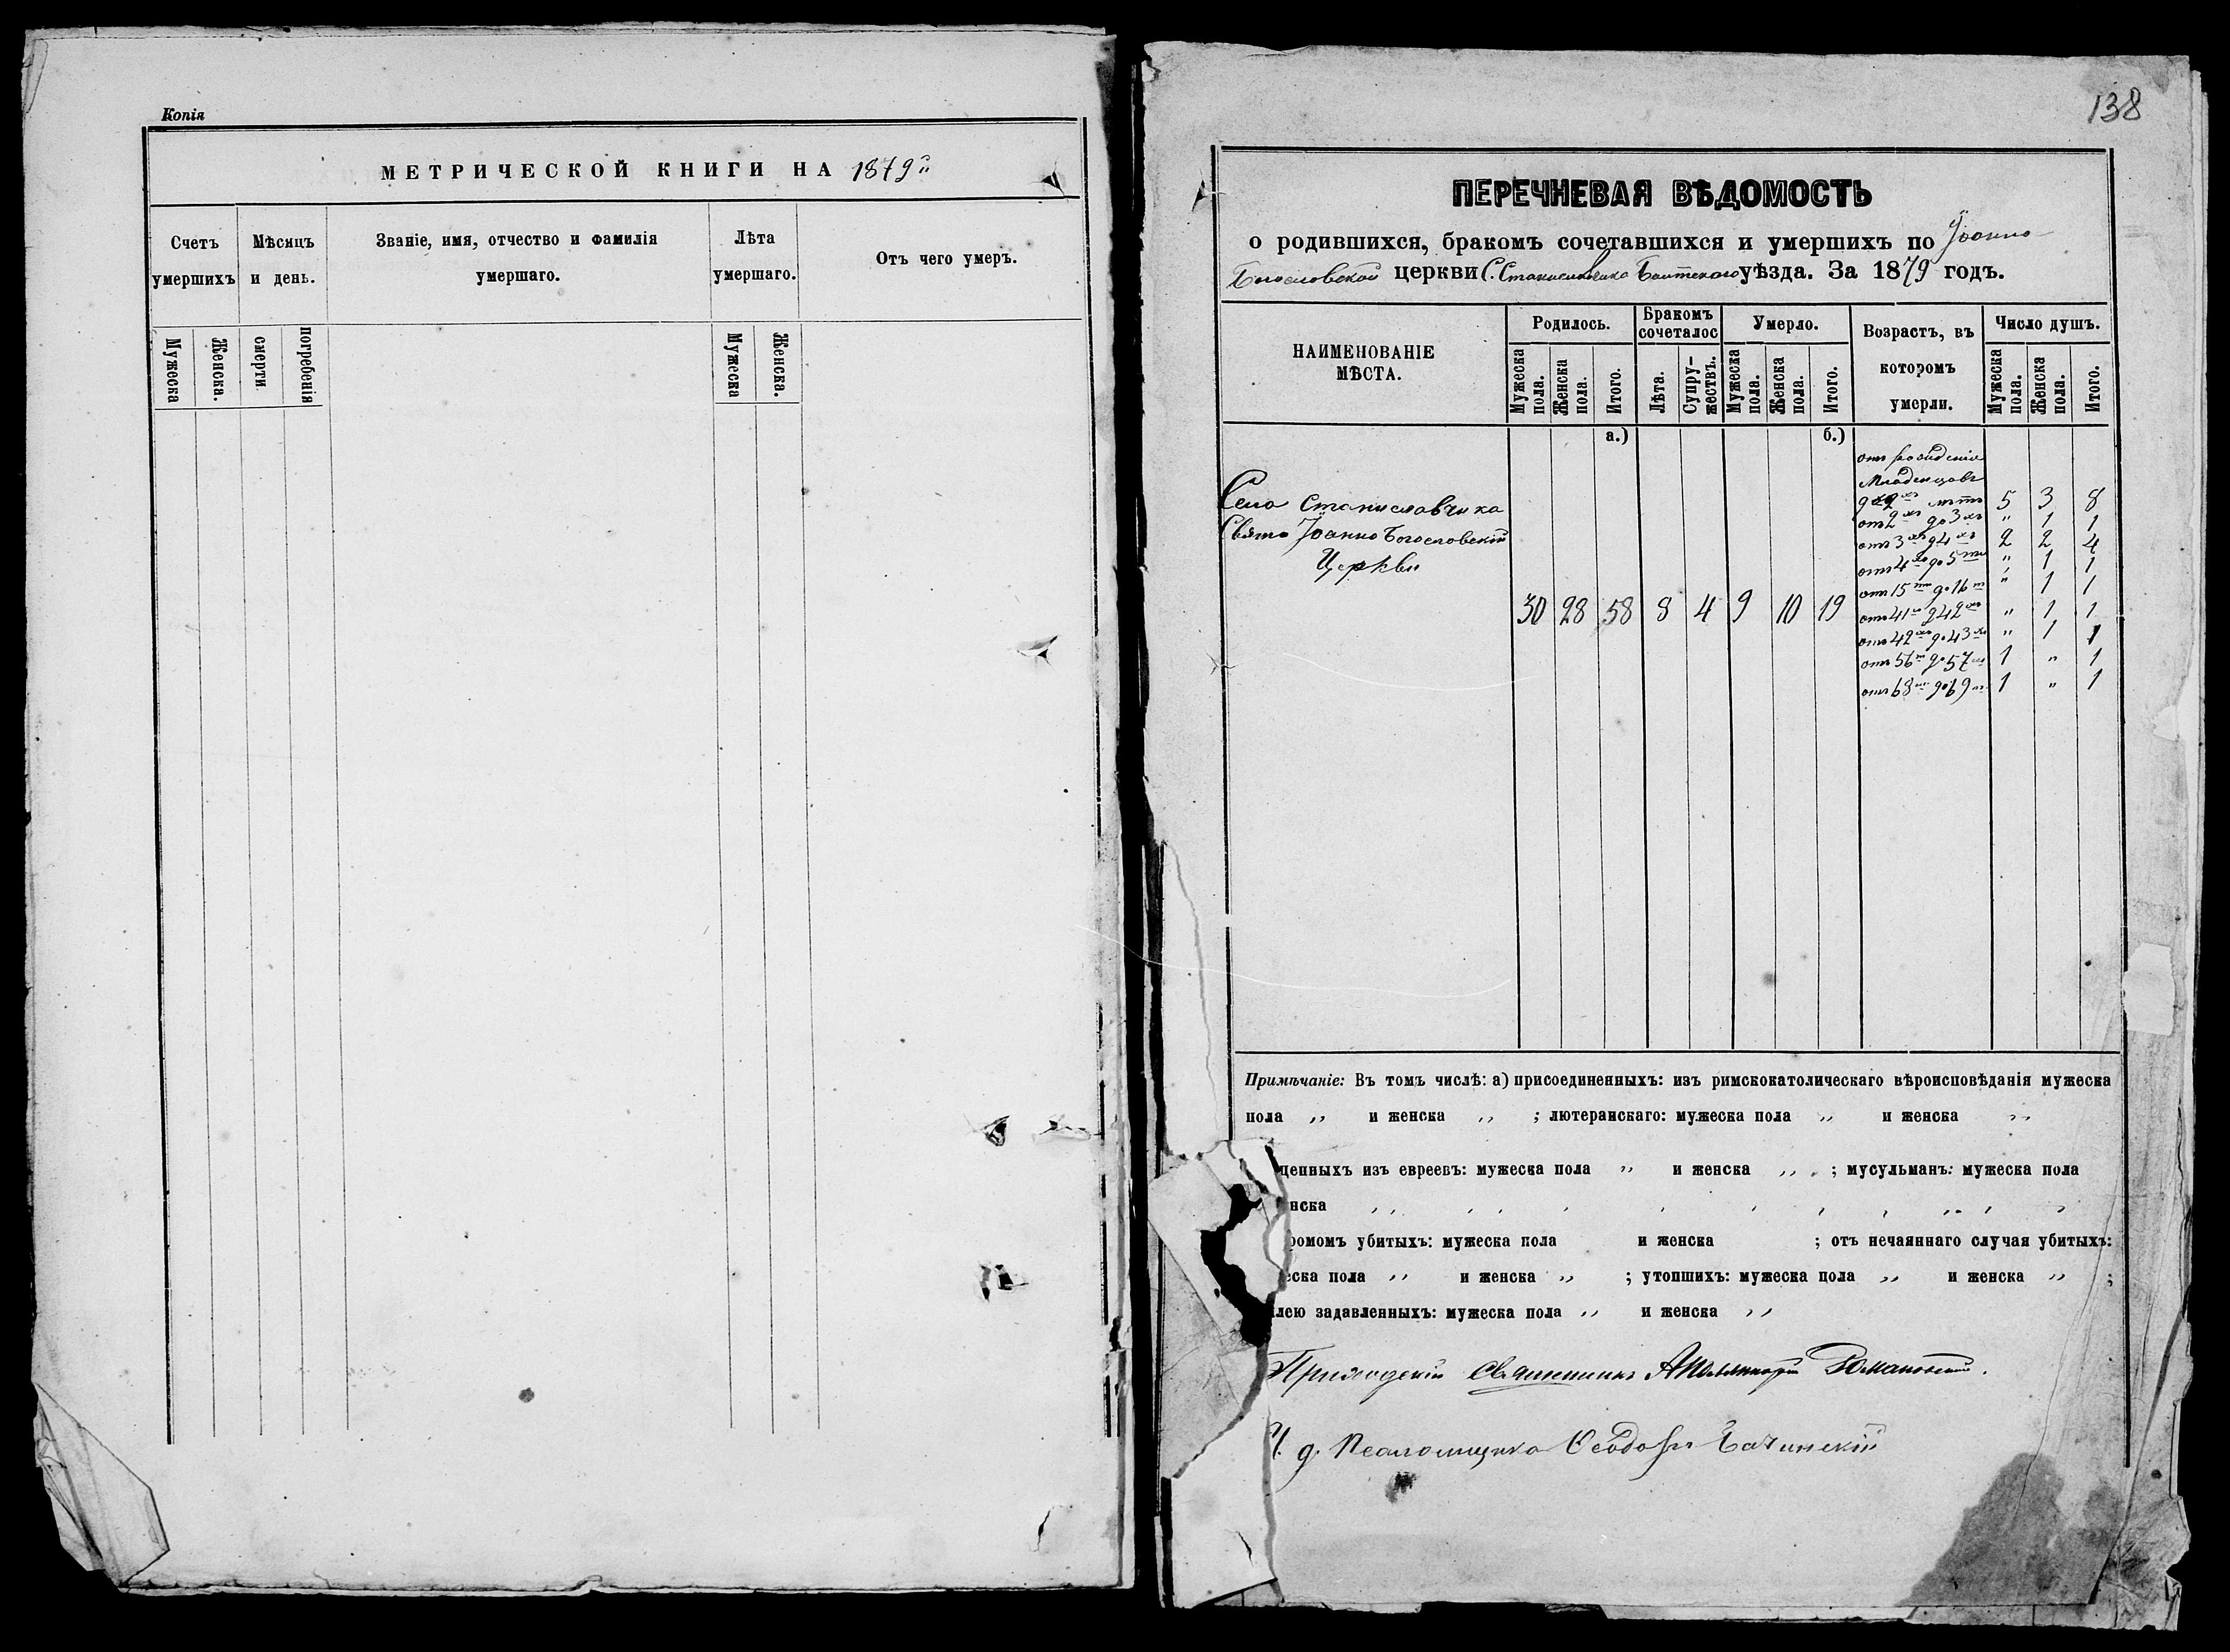 Копія
МЕТРИЧЕСКОЙ КНИГИ НА 1879й
Счетъ умершихъ
Мѣсяцъ и день.
Званіе, имя, отчество и фамилія умершаго.
Лѣта умершаго.
Отъ чего умеръ.
Мужеска
Женска.
смерти
погребенія
Мужеска
Женска.
138
ПЕРЕЧНЕВАЯ ВѢДОМОСТЬ
о родившихся, бракомъ сочетавшихся и умершихъ по Іоанно
Богословской церкви С. Станиславчика Балтскаго уѣзда. За 1879 годъ.
НАИМЕНОВАНІЕ МѢСТА.
Родилось.
Бракомъ сочеталос
Умерло.
Возрастъ, въ которомъ умерли.
Число душъ.
Мужеска пола.
Женска пола.
Итого.
Лѣта.
Супружествъ.
Мужеска пола.
Женска пола.
Итого.
Мужеска пола.
Женска пола.
Итого.
а.)
б.)
отъ рожденія
Младенцовъ
до 2хъ лѣтъ 5 3 8
отъ 2хъ до 3хъ " 1 1
отъ 3хъ д 4хъ 2 2 4
отъ 4хъ до 5ти " 1 1
отъ 15ти до 16ти " 1 1
отъ 41го д 42хъ " 1 1
отъ 42хъ до 43хъ " 1 1
отъ 56ти до 57ми 1 " 1
отъ 68ми до 69ти 1 " 1
Села Станиславчика
Свято Іоанно Богословской
Церкви
30 28 58 8 4 9 10 19
Примѣчаніе: Въ томъ числѣ: а) присоединенныхъ: изъ римскокатолическаго вѣроисповѣданія мужеска
пола " и женска " ; лютеранскаго: мужеска пола " и женска "
щенныхъ изъ евреевъ: мужеска пола " и женска " ; мусульманъ: мужеска пола
нска "
ромомъ убитыхъ: мужеска пола и женска ; отъ нечаяннаго случая убитыхъ:
еска пола " и женска " ; утопшихъ: мужеска пола " и женска " ;
лею задавленныхъ: мужеска пола " и женска "
Приходскій Священникъ Аполлинарій Романовскій.
И. д. Псаломщика Ѳеодоръ Бачинскій